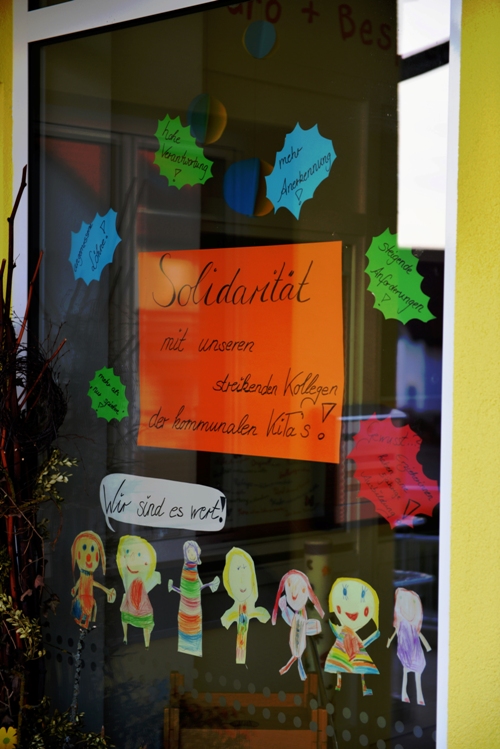 hohe
Verantwortung
!
mehr
Anerkennung
!
Löhne!
steigende
Anforderungen
!
Solidarität
mit unseren
streikenden Kollegen
der kommunalen KiTa's !
Wir sind es wert!